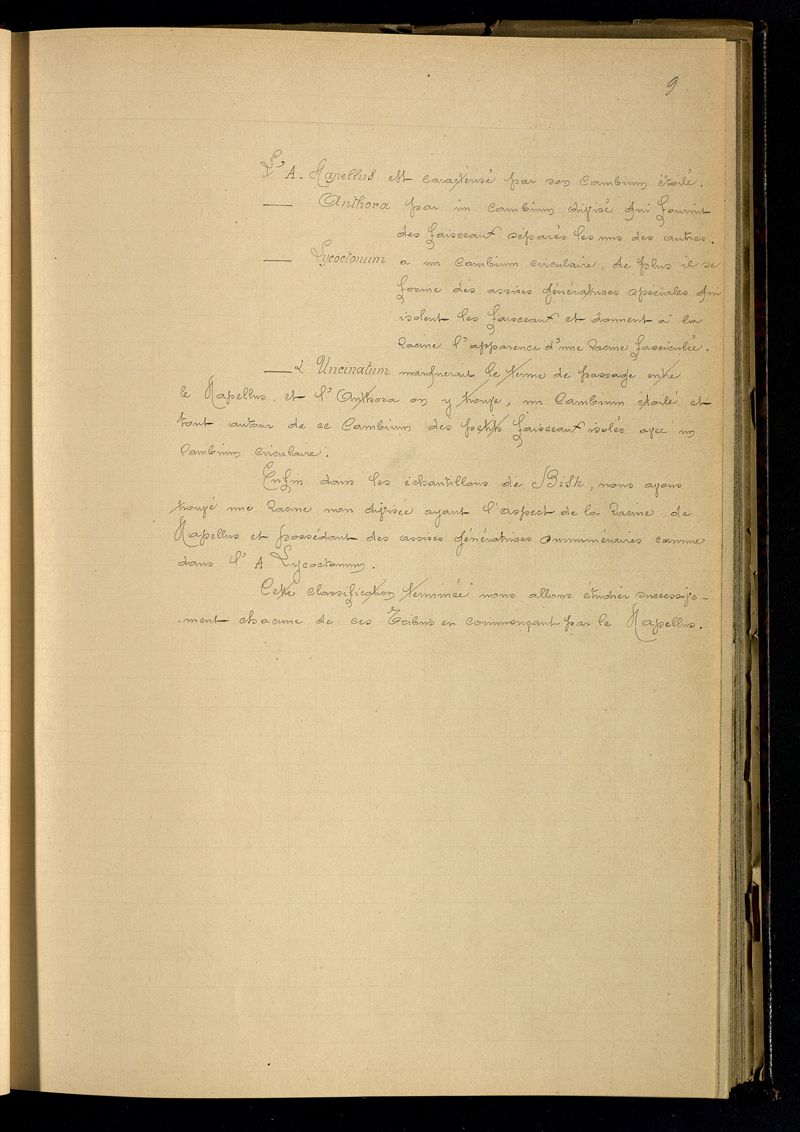 9
L'A. Napellus est caractérisé par son Cambium étoilé.
— Anthora par un Cambium divisé qui fournit
des faisceaux séparés les uns des autres.
— Lycoctonum a un Cambium circulaire, de plus il se
forme des assises génératrices spéciales qui
isolent les faisceaux et donnent à la
Racine l'apparence d'une Racine fasciculée.
— Uncinatum marquerait le terme de passage entre
le Napellus et l'Anthora on y trouve, un Cambium étoilé et
tout autour de ce Cambium des petits faisceaux isolés avec un
Cambium circulaire.
Enfin dans les échantillons de Bish, nous avons
trouvé une Racine non divisée ayant l'aspect de la Racine de
Napellus et possédant des assises génératrices comme
dans l'A Lycoctonum.
Cette classification terminée nous allons étudier successive-
ment chacune de ces Tribus en commençant par le Napellus.